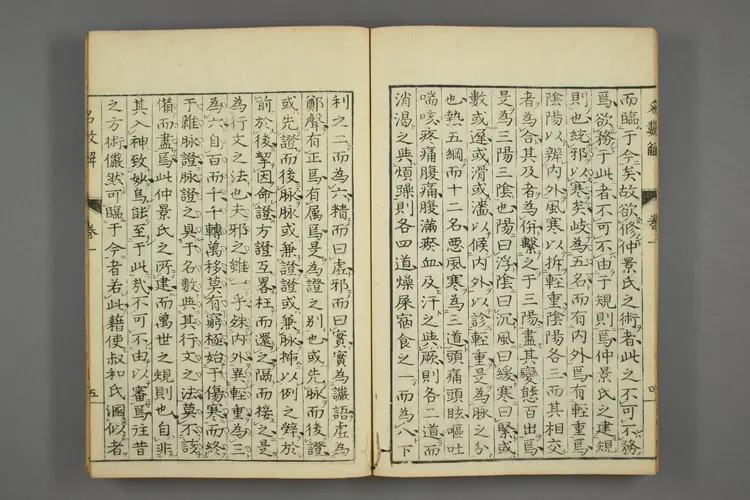 而臨于今矣故欲修仲景氏之術者此之不可不務
焉欲務于此者不可不由于規則焉仲景氏之建規
則也統邪以寒矣岐為五名而有内外焉有輕重焉
陰陽以辨内外風寒以拆輕重陰陽各三而其相交
者為合其及者為併繫之于三陽盡其變態百出焉
是為三陽三陰也陽曰浮陰曰沉風曰緩寒曰緊或
數或遲或滑或濇以候内外以診輕重是為脉之分
也熱五綱而十二名惡風寒為三道頭痛頭眩嘔吐
喘咳疼痛腹痛腹滿瘀血及汗之與厥則各二道而
消渴之與煩躁則各四道燥屎宿食之一而為八下
利之二而為六精而曰虚邪而曰實實為讝語虚為
鄭聲有正焉有属焉是為證之别也或先脉而後證
或先證而後脉脉或兼證證或兼脉揷以例之辨於
前於後挈因命證方證互畧枉而還之隔而接之是
為行文之法也夫邪之雖一乎殊内外異輕重為三
為六自百而千千轉萬移莫有窮極始于傷寒而終
于雜脉證脉證之具于名數與其行文之法莫不該
備而盡焉此仲景氏之所建而萬世之規則也自非
其入神致妙烏能至于此㢤不可不由以審焉往昔
之方術儼然可臨于今者若此藉使叔和氏溷似者
名數解
卷一
四
五